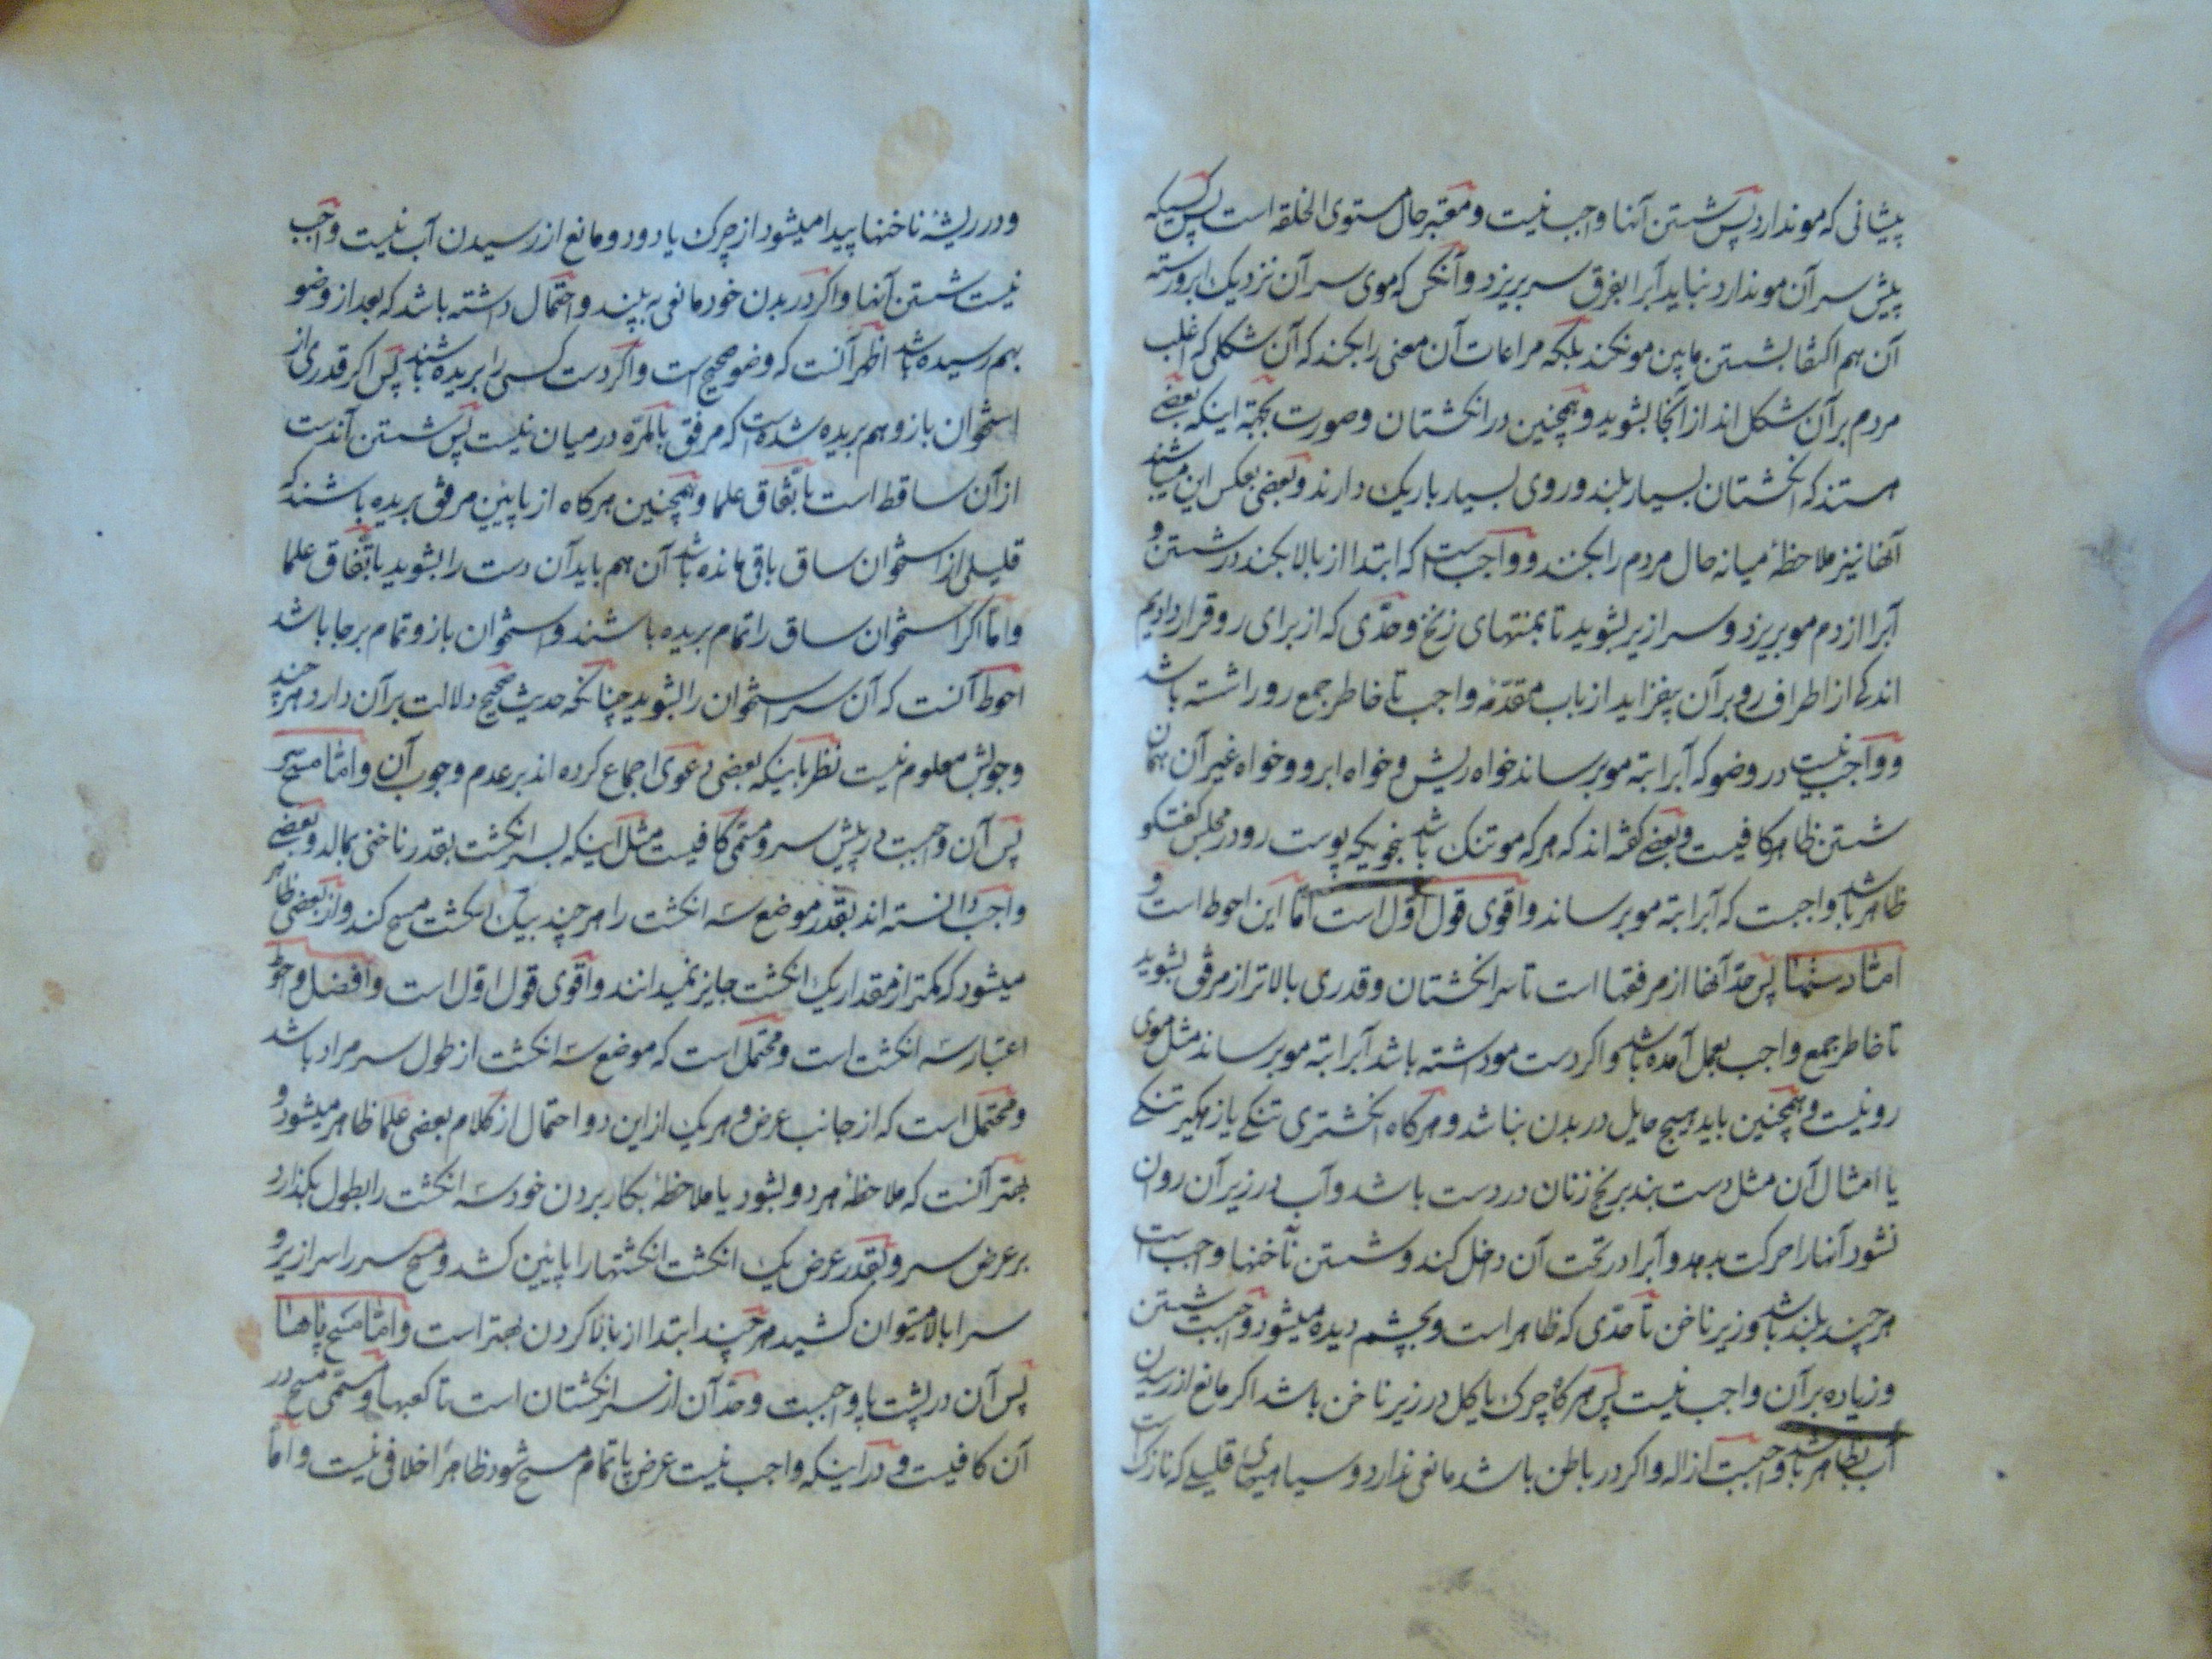 پیشانی که مو ندارد پس شستن آنها واجب نیست و معتبر حال مستوی الخلقه است پس کسیکه
پیش سر آن مو ندارد نباید آبرا بفرق سر بریزد و آنکس که موی سر آن نزدیک ابرو رسته
آن هم اکتفا بشستن مابین مو نکند بلکه مراعات آن معنی را بکند که آن شکلی که اغلب
مردم بر آن شکل اند از آنجا بشوید و همچنین در انکشتان و صورت بجهة اینکه بعضی
هستند که انکشتان بسیار بلند و روی بسیار باریک دارند و بعضی بعکس این میباشند
آنها نیز ملاحظهٔ میانه حال مردم را بکنند و واجب است که ابتدا از بالا بکند در شستن و
آبرا از دم مو بریزد و سرازیر بشوید تا بمنتهای زنخ و حدّی که از برای رو قرار دادیم
اندکی از اطراف رو بر آن بیفزاید از باب مقدّمهٔ واجب تا خاطر جمع رو را شسته باشد
و واجب نیست در وضو که آبرا بته مو برساند خواه ریش و خواه ابرو و خواه غیر آن همان
شستن ظاهر کافیست و بعضی کفته اند که هر که مو تنک باشد بنحویکه پوست رو در مجلس کفتکو
ظاهر باشد واجبست که آبرا بته مو برساند و اقوی قول اوّل است امّا این احوط است و
امّا دستها پس حدّ آنها از مرفقها است تا سر انکشتان و قدری بالاتر از مرفق بشوید
تا خاطر جمع واجب بعمل آمده باشد و اکر دست مو داشته باشد آبرا بته مو برساند مثل موی
رو نیست و همچنین باید هیچ حایل در بدن نباشد و هر کاه انکشتری تنکی یا زهکیر تنکی
یا امثال آن مثل دست بند برنج زنان در دست باشد و آب در زیر آن روان
نشود آنها را حرکت بدهد و آبرا در تحت آن داخل کند و شستن ناخنها واجب است
هر چند بلند باشد و زیر ناخن تا حدّی که ظاهر است و بچشم دیده میشود واجبست شستن
و زیاده بر آن واجب نیست پس هر کاه چرک یا کل در زیر ناخن باشد اکر مانع از رسیدن
آب بظاهر باشد واجبست ازاله و اکر در باطن باشد مانعی ندارد و سیاهیهای قلیلی که نازک است
و در ریشهٔ ناخنها پیدا میشود از چرک یا دود و مانع از رسیدن آب نیست واجب
نیست شستن آنها و اکر در بدن خود مانعی به بیند و احتمال داشته باشد که بعد از وضو
بهم رسیده باشد اظهر آنست که وضو صحیح است و اکر دست کسی را بریده باشند پس اکر قدری از
استخوان بازو هم بریده شده است که مرفق بالمرّه در میان نیست پس شستن آندست
از آن ساقط است باتّفاق علما و همچنین هر کاه از پایین مرفق بریده باشند که
قلیلی از استخوان ساق باقی مانده باشد آن هم باید آن دست را بشوید باتّفاق علما
و امّا اکر استخوان ساق را تمام بریده باشند و استخوان بازو تمام بر جا باشد
احوط آنست که آن سر استخوان را بشوید چنانکه حدیث صحیح دلالت بر آن دارد هر چند
وجوبش معلوم نیست نظر باینکه بعضی دعوی اجماع کرده اند بر عدم وجوب آن و امّا مسح سر
پس آن واجبست در پیش سر و مسمّی کافیست مثل اینکه بسر انکشت بقدر ناخنی بمالد و بعضی
واجب دانسته اند بقدر موضع سه انکشت را هر چند بیک انکشت مسح کند و از بعضی ظاهر
میشود که کمتر از مقدار یک انکشت جایز نمیدانند و اقوی قول اوّل است و افضل و احوط
اعتبار سه انکشت است و محتمل است که موضع سه انکشت از طول سر مراد باشد
و محتمل است که از جانب عرض و هر یک از این دو احتمال از کلام بعضی علما ظاهر میشود و
بهتر آنست که ملاحظهٔ هر دو بشود یا ملاحظهٔ بکار بردن خود سه انکشت را بطول بکذارد
بر عرض سر و بقدر عرض یک انکشت انکشتها را پایین کشد و مسح سر را سرازیر و
سرابالا میتوان کشید هر چند ابتدا از بالا کردن بهتر است و امّا مسح پاها
پس آن در پشت پا واجبست و حدّ آن از سر انکشتان است تا کعبها و مسمّی مسح در
آن کافیست و در اینکه واجب نیست عرض پا تمام مسح شود ظاهراً خلافی نیست و امّا